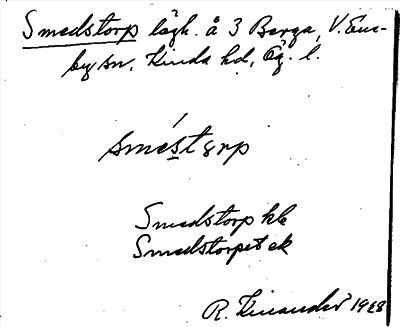 Smedstorp lägh. å 3 Berga, V. Ene-
by sn, Kinda hd, Ög. l.
smestɷrp
Smedstorp hk
Smedstorpet ek
R. Kinander 1928